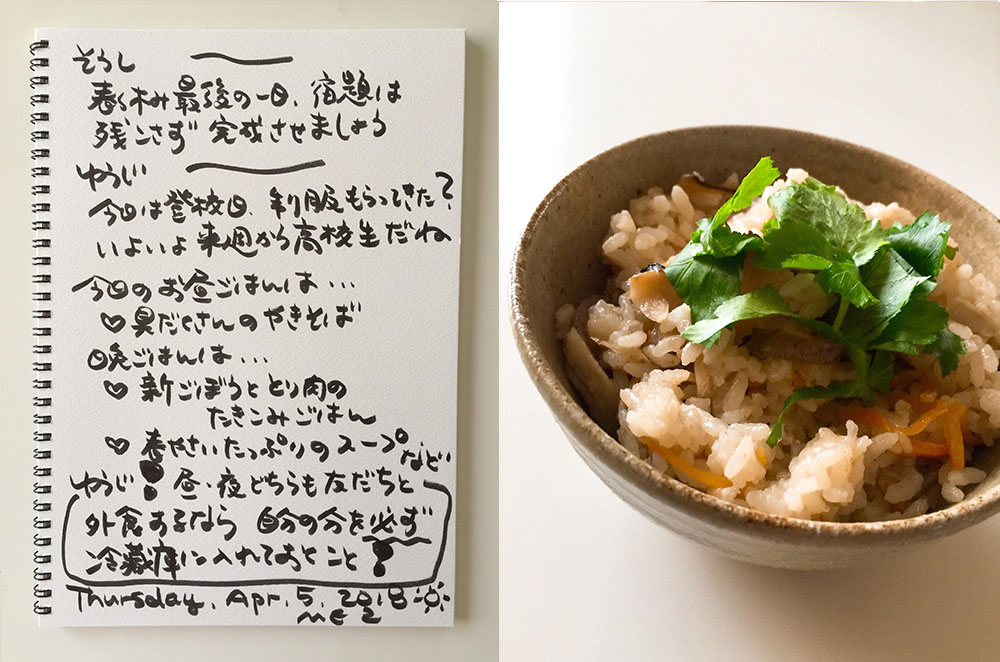 そうし
春休み最後の一日、宿題は
残こさず 完成させましょう
ゆうじ
今日は登校日、制服もらってきた？
いよいよ来週から高校生だね
今日のお昼ごはんは・・・
♡具だくさんのやきそば
晩ごはんは・・・
♡新ごぼうととり肉の
たきこみごはん
♡春やさいたっぷりのスープなど
ゆうじ！昼・夜どちらも友だちと
外食するなら 自分の分を必ず
冷蔵庫に入れておくこと！
Thursday, Apr. 5, 2018